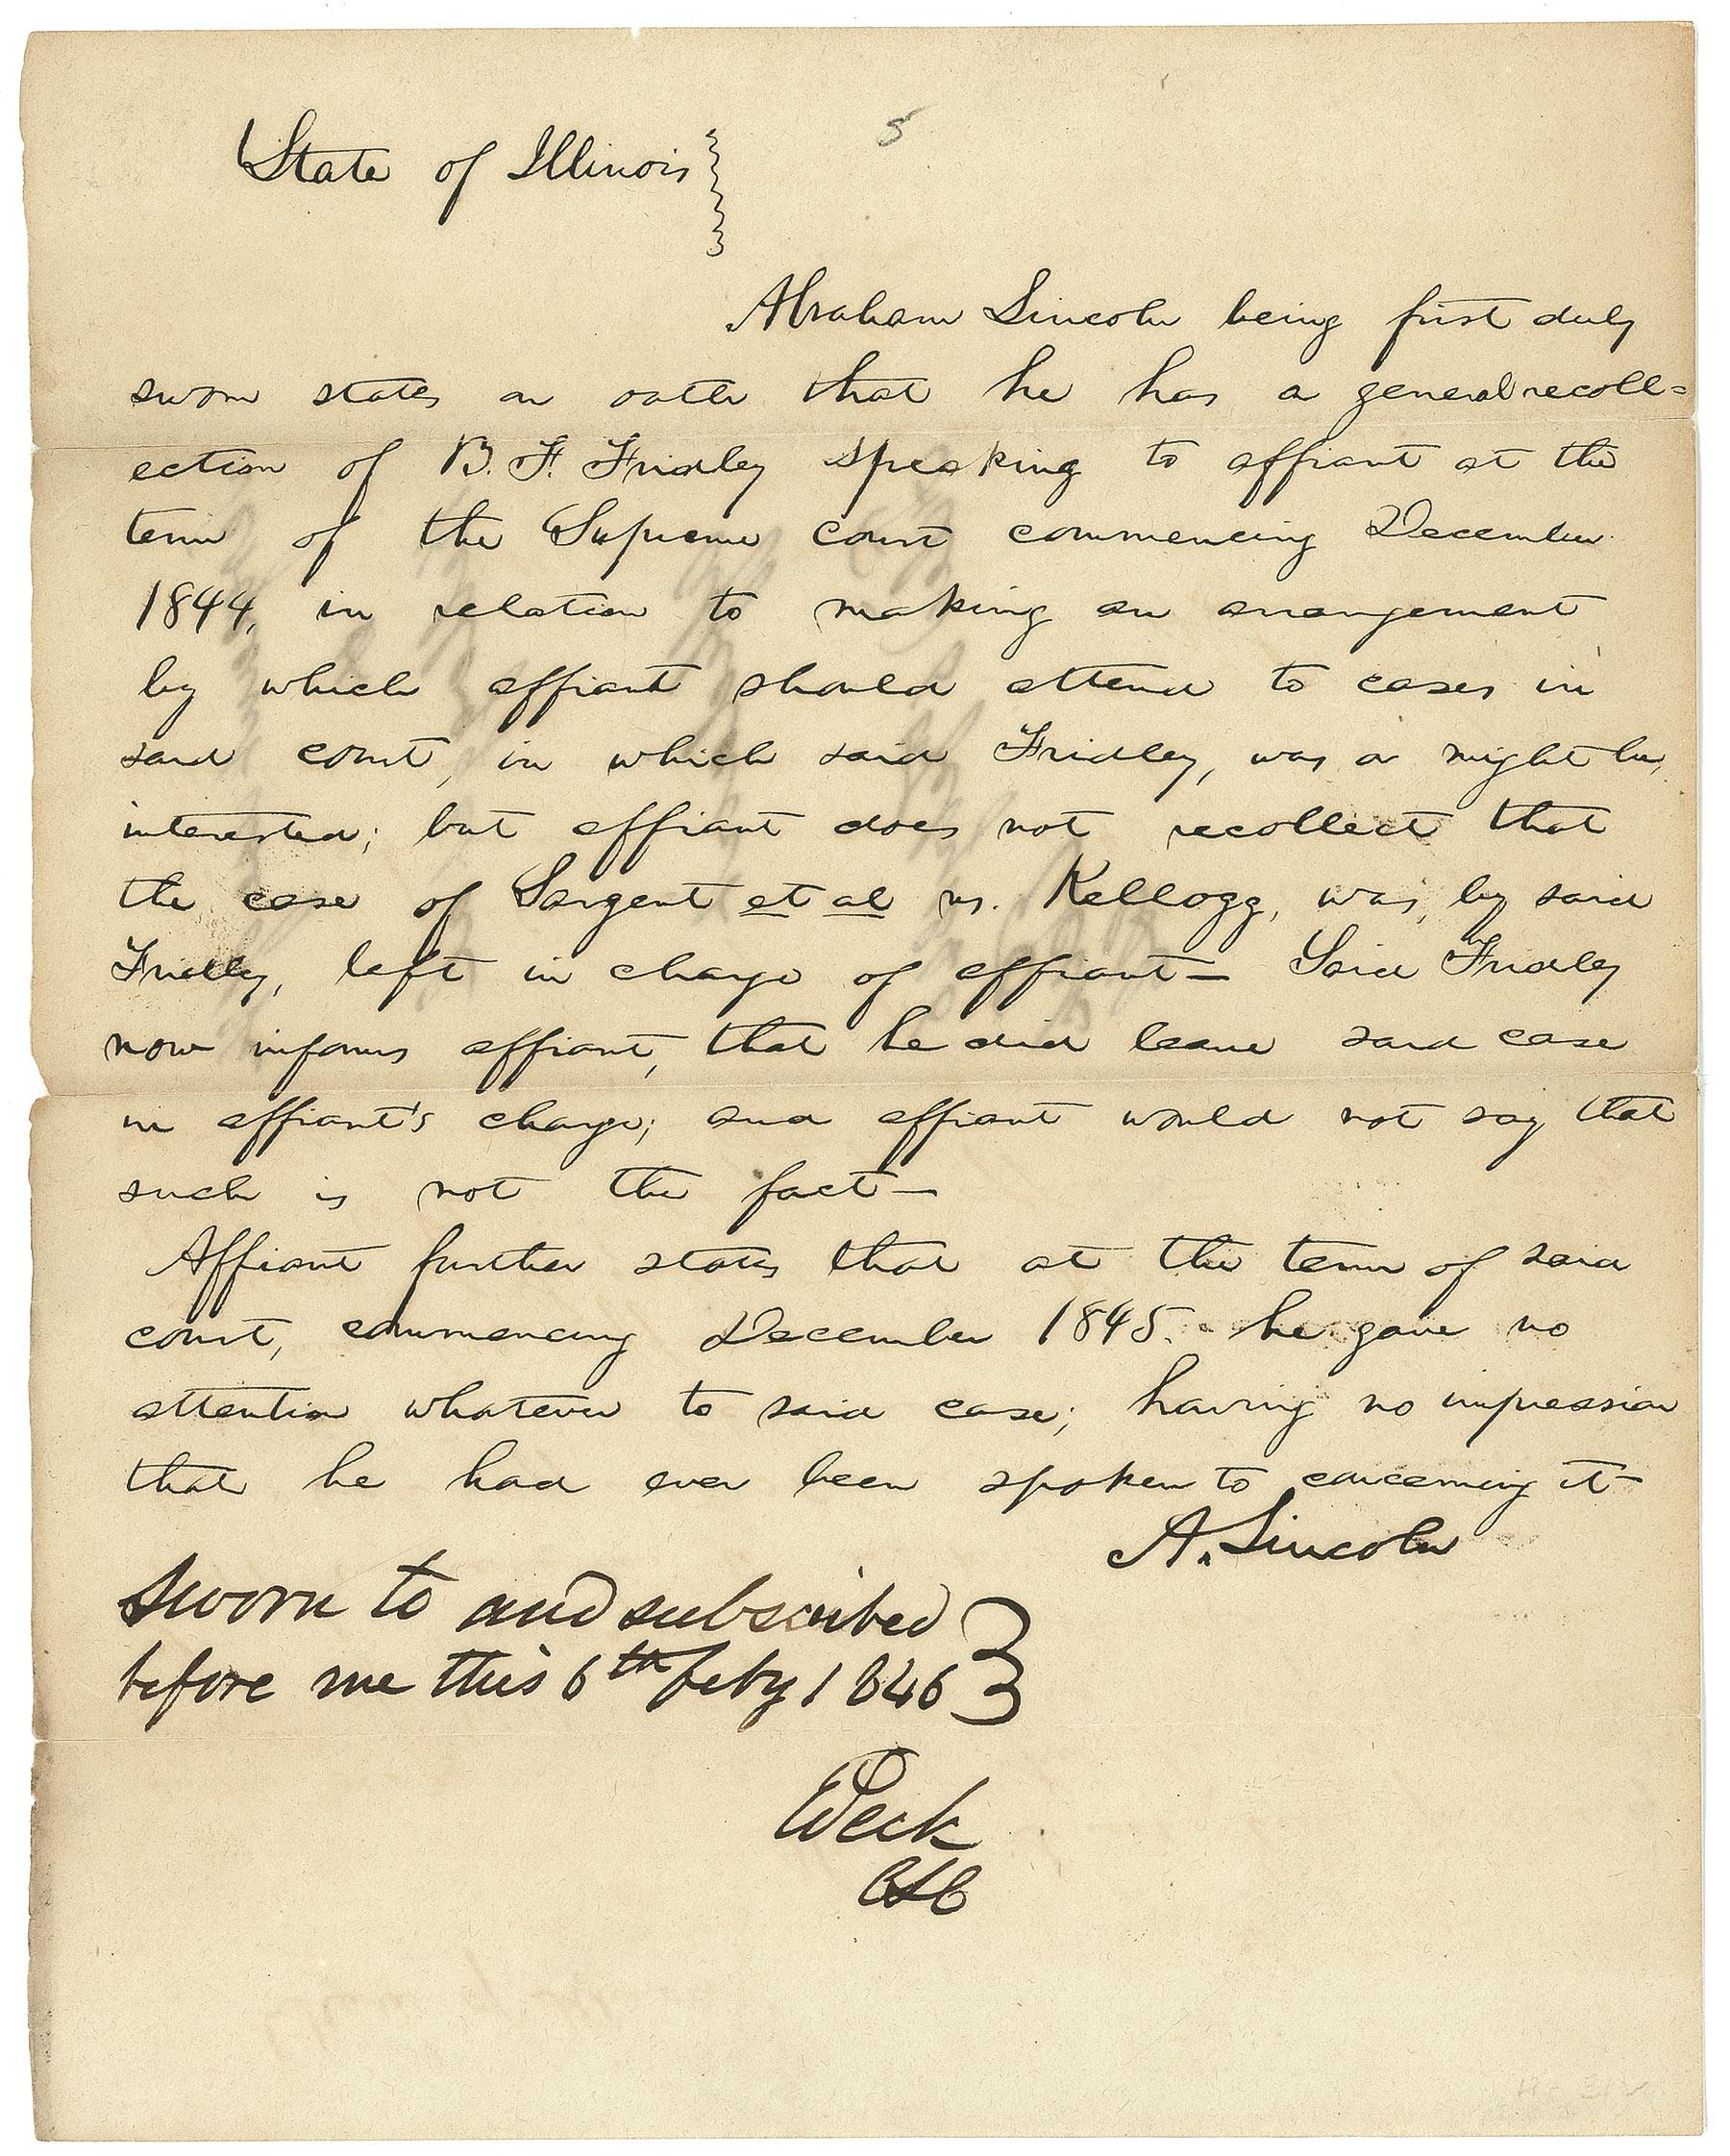 5
State of Illinois
Abraham Lincoln being first duly
sworn states on oath that he has a general recoll=
ection of B. F. Fridley speaking to affiant at the
term of the Supreme court commencing December
1844, in relation to making an arrangement
by which affiant should attend to cases in
said court, in which said Fridley, was or might be,
interested; but affiant does not recollect that
the case of Sargent et al vs. Kellogg, was, by said
Fridley, left in charge of affiant— Said Fridley
now informs affiant, that he did leave said case
in affiant's charge; and affiant would not say that
such is not the fact—
Affiant further states that at the term of said
court, commencing December 1845. he gave no
attention whatever to said case; having no impression
that he had ever been spoken to concerning it—
A. Lincoln
Sworn to and subscribed
before me this 6th feby 1846